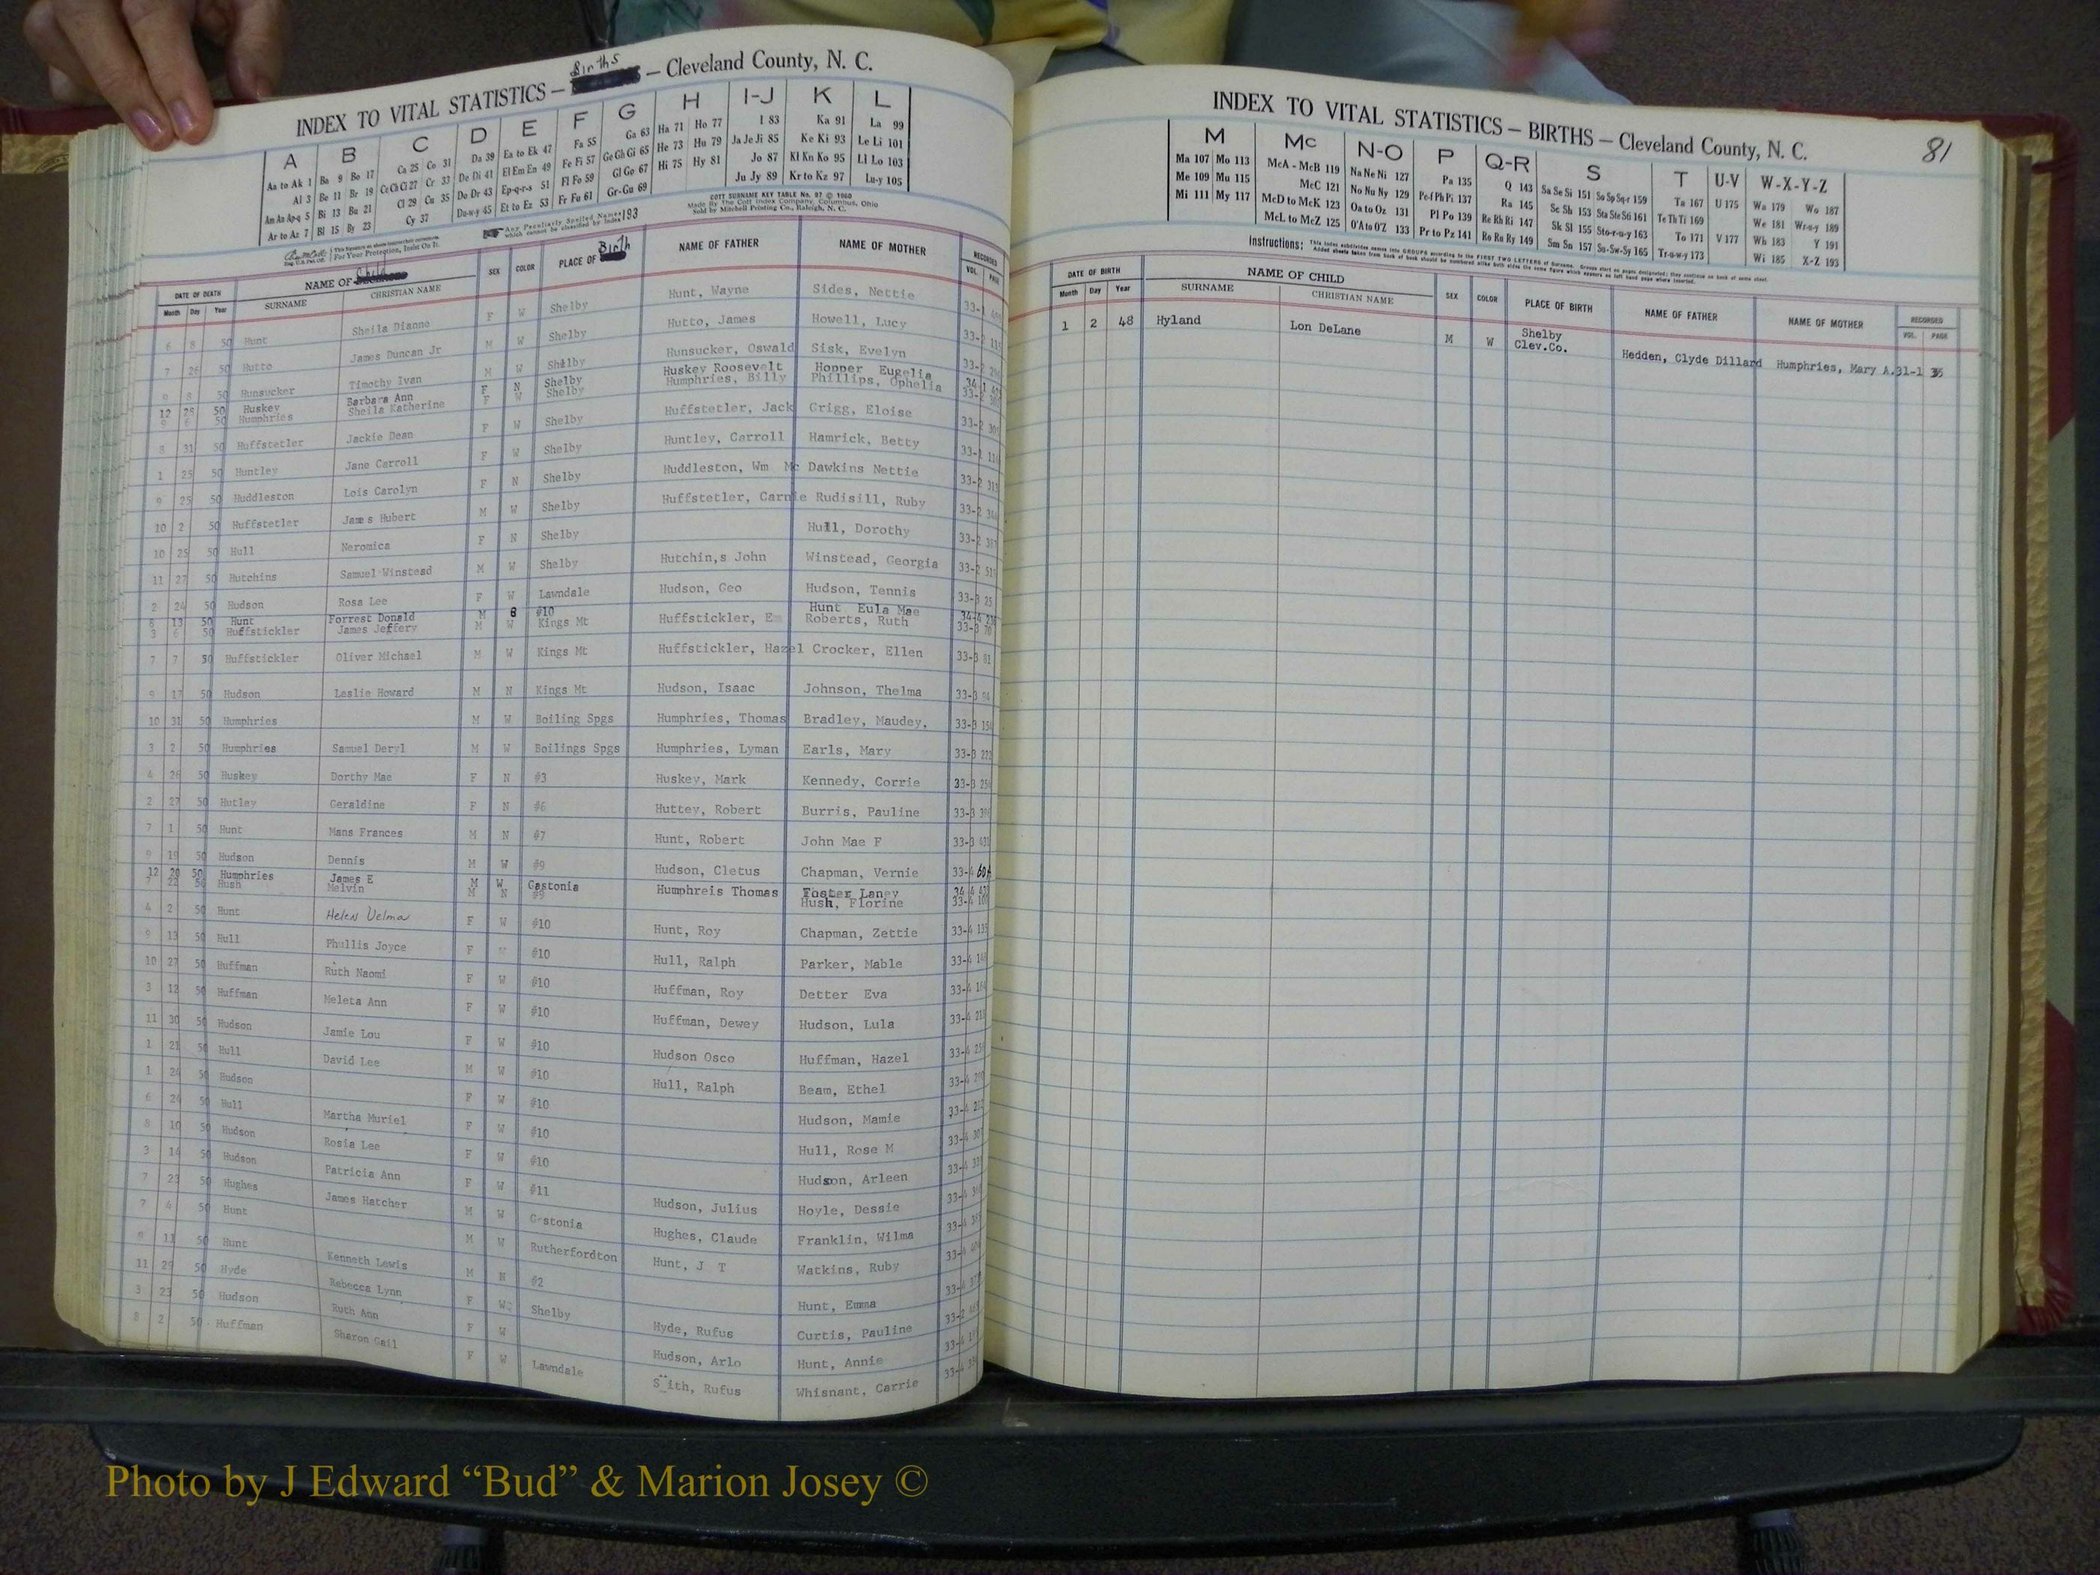 INDEX TO VITAL STATISTICS — Births — Cleveland County, N. C.
A B C D E F G H I-J K L
Aa to Ak 1 Ba 9 Bo 17 Ca 25 Co 31 Da 39 Ea to Ek 47 Fa 55 Ga 63 Ha 71 Ho 77 I 83 Ka 91 La 99
Al 3 Be 11 Br 19 Ce Ch Ci 27 Cr 33 De Di 41 El Em En 49 Fe Fi 57 Ge Gh Gi 65 He 73 Hu 79 Ja Je Ji 85 Ke Ki 93 Le Li 101
Am An Ap-q 5 Bi 13 Bu 21 Cl 29 Cu 35 Do Dr 43 Ep-q-r-s 51 Fl Fo 59 Gl Go 67 Hi 75 Hy 81 Jo 87 Kl Kn Ko 95 Ll Lo 103
Ar to Az 7 Bl 15 By 23 Cy 37 Du-w-y 45 Et to Ez 53 Fr Fu 61 Gr-Gu 69 Ju Jy 89 Kr to Kz 97 Lu-y 105
COTT SURNAME KEY TABLE No. 97 © 1960
Made By The Cott Index Company, Columbus, Ohio
Sold by Mitchell Printing Co., Raleigh, N. C.
Any Peculiarly Spelled Names which cannot be classified by Index 193
For Your Protection, Insist On It.
DATE OF DEATH NAME OF SEX COLOR PLACE OF Birth NAME OF FATHER NAME OF MOTHER RECORDED
Month Day Year SURNAME CHRISTIAN NAME VOL. PAGE
6 8 50 Hunt Sheila Dianne F W Shelby Hunt, Wayne Sides, Nettie 33-1
7 26 50 Hutto James Duncan Jr M W Shelby Hutto, James Howell, Lucy 33-2
9 8 50 Hunsucker Timothy Ivan M W Shelby Hunsucker, Oswald Sisk, Evelyn 33-2
12 25 50 Huskey Barbara Ann F N Shelby Huskey Roosevelt Hopper Eugelia 34 1
9 6 50 Humphries Sheila Katherine F W Shelby Humphries, Billy Phillips, Ophelia 33-2
8 31 50 Huffstetler Jackie Dean F W Shelby Huffstetler, Jack Grigg, Eloise 33-2
1 25 50 Huntley Jane Carroll F W Shelby Huntley, Carroll Hamrick, Betty 33-1
9 25 50 Huddleston Lois Carolyn F N Shelby Huddleston, Wm Mc Dawkins Nettie 33-2
10 2 50 Huffstetler James Hubert M W Shelby Huffstetler, Carnie Rudisill, Ruby 33-2
10 25 50 Hull Neromica F N Shelby Hull, Dorothy 33-2
11 27 50 Hutchins Samuel Winstead M W Shelby Hutchin,s John Winstead, Georgia 33-2
2 24 50 Hudson Rosa Lee F W Lawndale Hudson, Geo Hudson, Tennis 33-3 25
8 13 50 Hunt Forrest Donald M B #10 Hunt Eula Mae 34-4
3 6 50 Huffstickler James Jeffery M W Kings Mt Huffstickler, Em Roberts, Ruth 33-3 70
7 7 50 Huffstickler Oliver Michael M W Kings Mt Huffstickler, Hazel Crocker, Ellen 33-3 81
9 17 50 Hudson Leslie Howard M N Kings Mt Hudson, Isaac Johnson, Thelma 33-3 94
10 31 50 Humphries M W Boiling Spgs Humphries, Thomas Bradley, Maudey, 33-3
3 2 50 Humphries Samuel Deryl M W Boilings Spgs Humphries, Lyman Earls, Mary 33-3
4 26 50 Huskey Dorthy Mae F N #3 Huskey, Mark Kennedy, Corrie 33-3
2 27 50 Hutley Geraldine F N #6 Huttey, Robert Burris, Pauline 33-3
7 1 50 Hunt Mans Frances M N #7 Hunt, Robert John Mae F 33-3
9 19 50 Hudson Dennis M W #9 Hudson, Cletus Chapman, Vernie 33-4
12 20 50 Humphries James E M W Gastonia Humphreis Thomas Foster Laney 34 4
7 22 50 Hush Melvin M N #9 Hush, Florine 33-4
4 2 50 Hunt Helen Velma F W #10 Hunt, Roy Chapman, Zettie 33-4
9 13 50 Hull Phullis Joyce F W #10 Hull, Ralph Parker, Mable 33-4
10 27 50 Huffman Ruth Naomi F W #10 Huffman, Roy Detter Eva 33-4
3 12 50 Huffman Meleta Ann F W #10 Huffman, Dewey Hudson, Lula 33-4
11 30 50 Hudson Jamie Lou F W #10 Hudson Osco Huffman, Hazel 33-4
1 21 50 Hull David Lee M W #10 Hull, Ralph Beam, Ethel 33-4
1 24 50 Hudson F W #10 Hudson, Mamie 33-4
6 24 50 Hull Martha Muriel F W #10 Hull, Rose M 33-4
8 10 50 Hudson Rosia Lee F W #10 Hudson, Arleen 33-4
3 14 50 Hudson Patricia Ann F W #11 Hudson, Julius Hoyle, Dessie 33-4
7 23 50 Hughes James Hatcher M W Gastonia Hughes, Claude Franklin, Wilma 33-4
7 4 50 Hunt M W Rutherfordton Hunt, J T Watkins, Ruby 33-4
9 11 50 Hunt Kenneth Lewis M N #2 Hunt, Emma 33-4
11 29 50 Hyde Rebecca Lynn F W Shelby Hyde, Rufus Curtis, Pauline 33-2
3 23 50 Hudson Ruth Ann F W Hudson, Arlo Hunt, Annie 33-4
8 2 50 Huffman Sharon Gail F W Lawndale S ith, Rufus Whisnant, Carrie 33-4
INDEX TO VITAL STATISTICS — BIRTHS — Cleveland County, N. C.
81
M Mc N-O P Q-R S T U-V W-X-Y-Z
Ma 107 Mo 113 McA - McB 119 Na Ne Ni 127 Pa 135 Q 143 Sa Se Si 151 So Sp Sq-r 159 Ta 167 U 175 Wa 179 Wo 187
Me 109 Mu 115 McC 121 No Nu Ny 129 Pe-f Ph Pi 137 Ra 145 Sc Sh 153 Sta Ste Sti 161 Te Th Ti 169 We 181 Wr-u-y 189
Mi 111 My 117 McD to McK 123 Oa to Oz 131 Pl Po 139 Re Rh Ri 147 Sk Sl 155 Sto-r-u-y 163 To 171 V 177 Wh 183 Y 191
McL to McZ 125 O'A to O'Z 133 Pr to Pz 141 Ro Ru Ry 149 Sm Sn 157 Su-Sw-Sy 165 Tr-u-w-y 173 Wi 185 X-Z 193
Instructions: This Index subdivides names into GROUPS according to the FIRST TWO LETTERS of Surname. Groups start on pages designated; they continue on back of same sheet.
Added sheets taken from back of book should be numbered alike both sides the same figure which appears on left hand page where inserted.
DATE OF BIRTH NAME OF CHILD SEX COLOR PLACE OF BIRTH NAME OF FATHER NAME OF MOTHER RECORDED
Month Day Year SURNAME CHRISTIAN NAME VOL. PAGE
1 2 48 Hyland Lon DeLane M W Shelby Clev.Co. Hedden, Clyde Dillard Humphries, Mary A. 31-1 35
Photo by J Edward “Bud” & Marion Josey ©